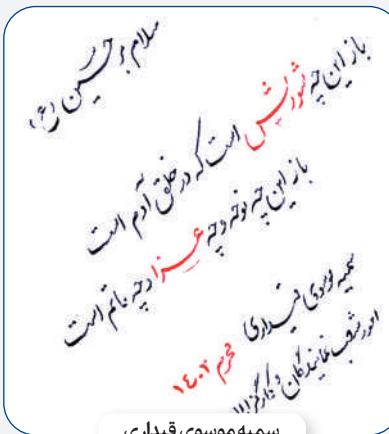 سلام بر حسین (ع)
باز این چه شورش است که در خلق آدم است
باز این چه نوحه و چه عزا و چه ماتم است
سمیه موسوی قیداری
محرم ۱۴۰۳
امور شعب نمایندگان و کارگزاران
سمیه موسوی قیداری